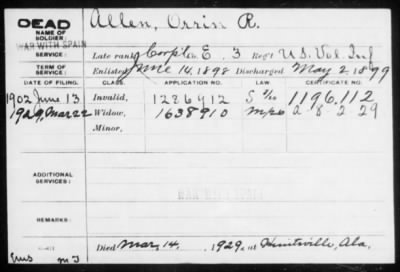 DEAD Allen, Orrin R.
NAME OF
SOLDIER:
WAR WITH SPAIN
SERVICE: Late rank Corp'l Co. E. 3 Reg't U.S. Vol. Inf
TERM OF
SERVICE: Enlisted June 14, 1898 Discharged May 2, 1899
DATE OF FILING. CLASS. APPLICATION NO. CERTIFICATE NO.
1902 June 13 Invalid, 1286912 1196.112
1929, Mar 22 Widow, 1638910 a 8 2 29
Minor,
ADDITIONAL
SERVICES:
WAR WITH SPAIN
REMARKS:
Died Mar. 14, 1929, at Huntsville, Ala.